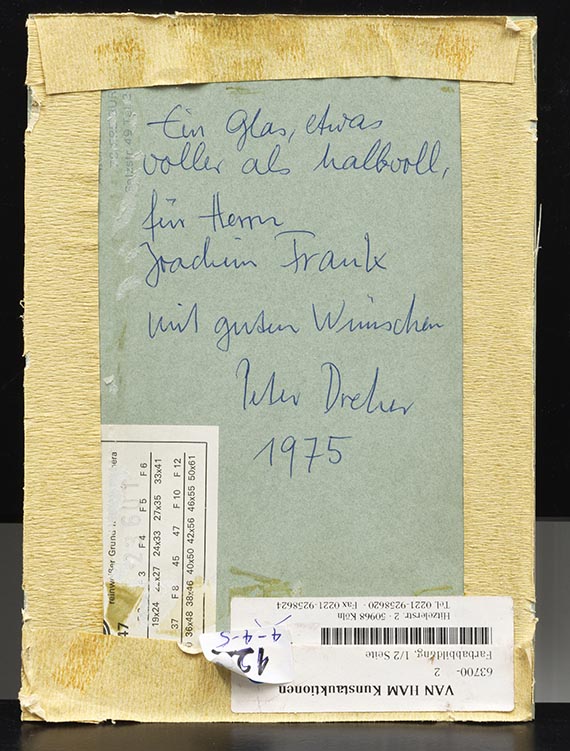 Ein Glas, etwas
voller als halbvoll,
für Herrn
Joachim Frank
mit guten Wünschen
Peter Dreher
1975
reinweißer
47
3 F 4 F 5 F 6
19x24 22x27 24x33 27x35 33x41
37 F 8 45 47 F 10 F 12
36x48 38x46 40x50 42x56 46x55 50x61
4-4-5
12
VAN HAM Kunstauktionen
63700-
2
Farbabbildung, 1/2 Seite
Hitzelerstr. 2 · 50968 Köln
Tel. 0221-9258620 · Fax 0221-9258624